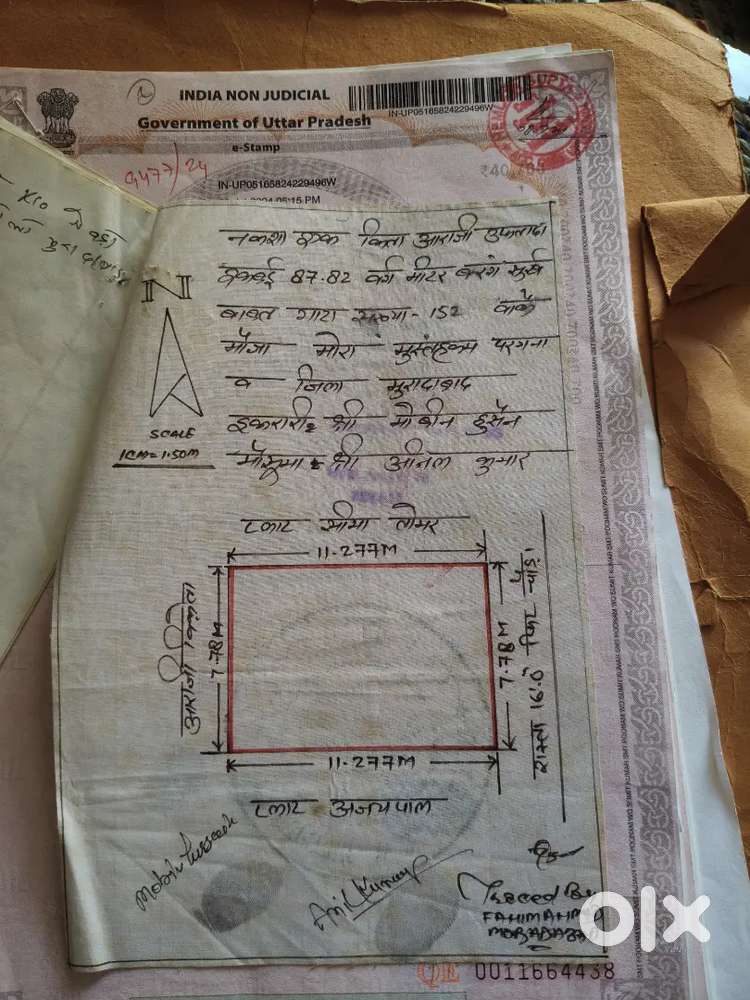 INDIA NON JUDICIAL
Government of Uttar Pradesh
e-Stamp
IN-UP05165824229496W
9477/24
IN-UP05165824229496W
05:15 PM
₹40,
नकशा एक किता आराजी
87.82 वर्ग मीटर बरंग सुर्ख
बाबत गाटा संख्या-152 वाके
मौजा मोरा मुस्तहकम परगना
व जिला मुरादाबाद
इकरारी= श्री मोबीन हुसैन
श्री अनिल कुमार
N
SCALE
1CM=1.50M
प्लाट सीमा तोमर
11.277M
7.78M
7.78M
रास्ता 16.0 फिट चौड़ा
आराजी
11.277M
प्लाट अजयपाल
Mobin Hussain
Anil Kumar
Traced By:
FAHIM AHM
MORADABAD
QE 0011664438
olx